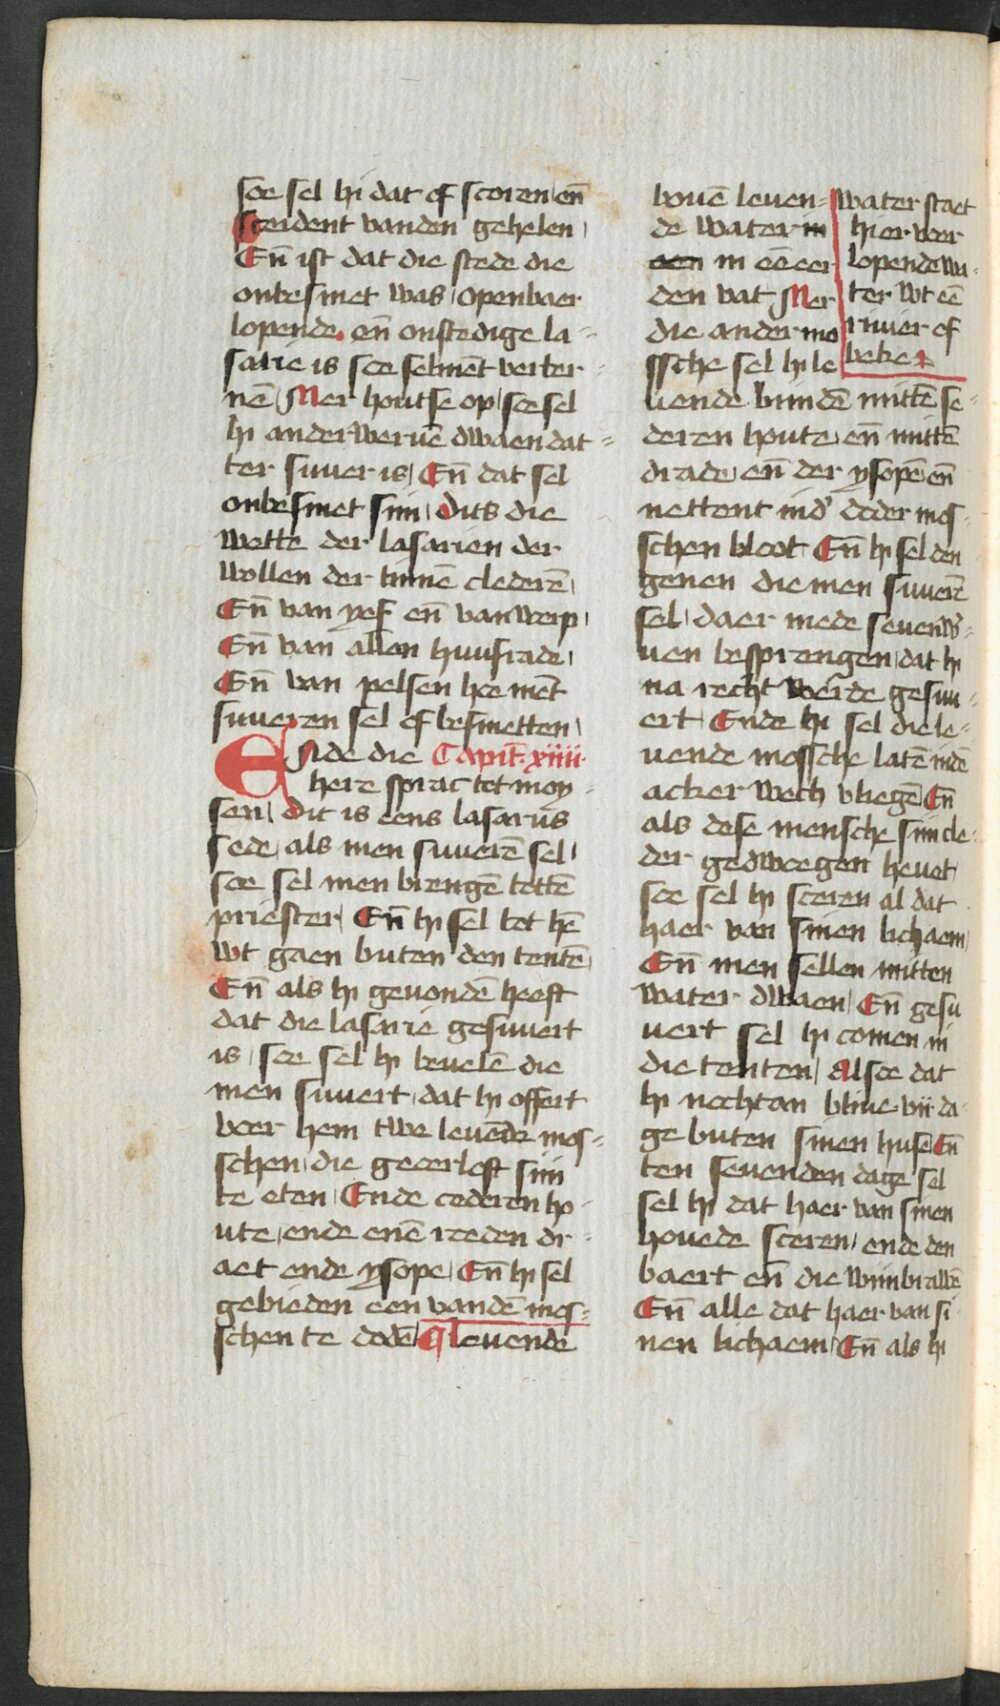 soe sel hi dat of scoren en̄
sceident vanden gehelen
En̄ ist dat die stede die
onbesmet was openbaer
lopende en̄ onstedige la-
sarie is soe selmēt verber-
nē Mer houtse op soe sel
hi anderweruē dwaen dat-
ter suuer is En̄ dat sel
onbesmet siin Dits die
wette der lasarien der
wollen der linnē clederē
En̄ van yef en̄ van werp
En̄ van allen huusrade
En̄ van pelsen hoe mēt
suueren sel of besmetten
Ende die Capit̄. xiiii.
here sprac tot moy-
sen Dit is eens lasarus
sede als men suuerē sel
soe sel men brengē tottē
priester En̄ hi sel tot hē
wt gaen buten den tentē
En̄ als hi geuondē heeft
dat die lasarie gesuuert
is soe sel hi beuelē die
men suuert dat hi offert
voer hem twe leuende mos-
schen die georloft siin
te eten Ende cederen ho-
ute ende enē roeden dr-
aet ende ysope En̄ hi sel
gebieden een vandē mos-
schen te dodē leuende
water staet
hier voer
lopende wa-
ter wt eē
riuier of
beke
bouē leuen-
de water in
een in eē eer
den vat Mer
die ander mo
ssche sel hi le
uende bindē mittē se-
deren houte en̄ mittē
drade en̄ der ysopē en̄
nettent ind' doder mos-
schen bloet En̄ hi sel den
genen diemen suuerē
sel daer mede seuenw'-
uen besprengen dat hi
na recht werde gesuu-
ert Ende hi sel die le-
uende mossche latē indē
acker wech vliegē En̄
als dese mensche siin cle-
der gedwoegen heuet
soe sel hi sceren al dat
haer van sinen lichaem
En̄ men sellen mitten
water dwaen En̄ gesu
uert sel hi comen in
die tenten Alsoe dat
hi nochtan bliue vii da-
ge buten sinen huse En̄
ten seuenden dage sel
sel hi dat haer van sinen
houede sceren ende den
baert en̄ die wiinbrawē
En̄ alle dat haer van si
nen lichaem En̄ als hi